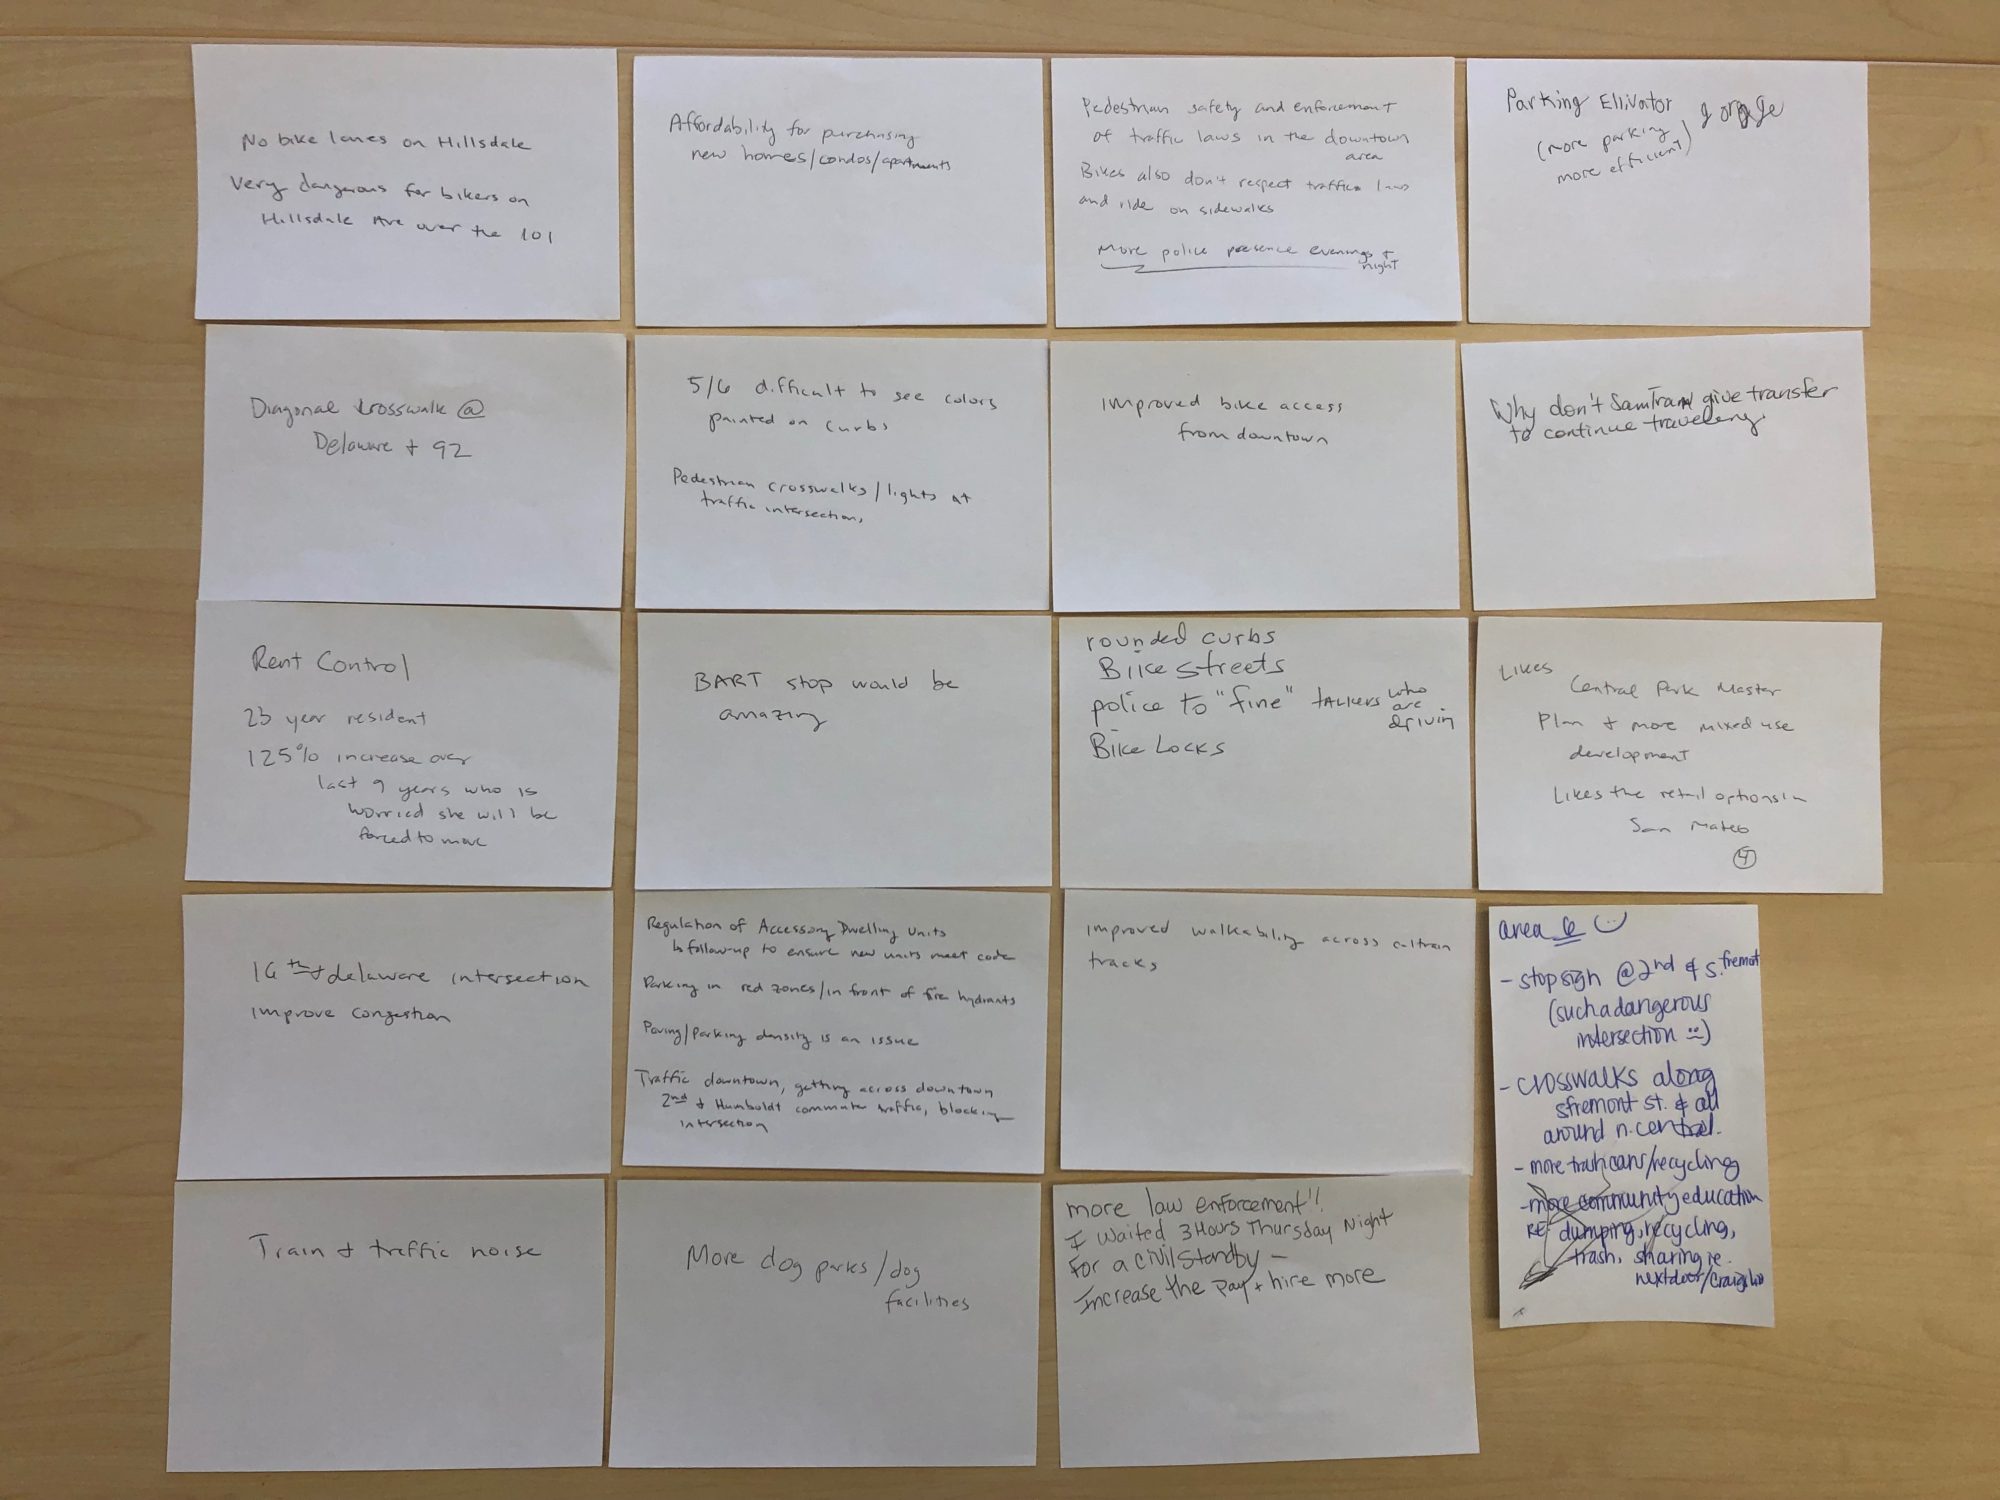 No bike lanes on Hillsdale
Very dangerous for bikers on
Hillsdale Ave over the 101
Affordability for purchasing
new homes/condos/apartments
Pedestrian safety and enforcement
of traffic laws in the downtown
area
Bikes also don't respect traffic laws
and ride on sidewalks
More police presence evenings +
night
Parking Ellivator
(more parking
more efficient)
Diagonal Crosswalk @
Delaware + 92
5/6 difficult to see colors
painted on curbs
Pedestrian crosswalks/lights at
traffic intersection,
improved bike access
from downtown
Why don't SamTran give transfer
to continue traveleng.
Rent Control
23 year resident
125% increase over
last 9 years who is
worried she will be
forced to move
BART stop would be
amazing
rounded curbs
Biike streets
police to "fine" tALKERS who
are
drivin
Bike Locks
Likes
Central Park Master
Plan + more mixed use
development
Likes the retail options in
San Mateo
4
16th + delaware intersection
improve congestion
Regulation of Accessory Dwelling Units
↳ follow-up to ensure new units meet code
Parking in red zones/in front of fire hydrants
Paving/parking density is an issue
Traffic downtown, getting across downtown
2nd + Humboldt commuter traffic, blocking
intersection
improved walkability across caltrain
tracks
area 6
- stop sign @ 2nd & S. fremont
(such a dangerous
intersection)
- crosswalks along
s fremont st. & all
around n. central.
- more trash cans/recycling
- more community education
RE dumping, recycling,
trash, sharing ie.
nextdoor/Craigslist
Train + traffic noise
More dog parks/dog
facilities
more law enforcement!!
I waited 3 Hours Thursday Night
For a civil standby —
Increase the pay + hire more